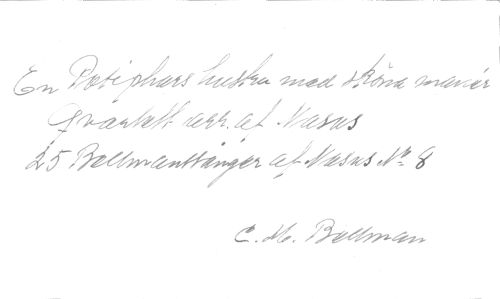 En Potiphars hustru med sköna manér
Qvartett arr. af Nasus
25 Bellmanssånger af Nasus No 8
C. M. Bellman